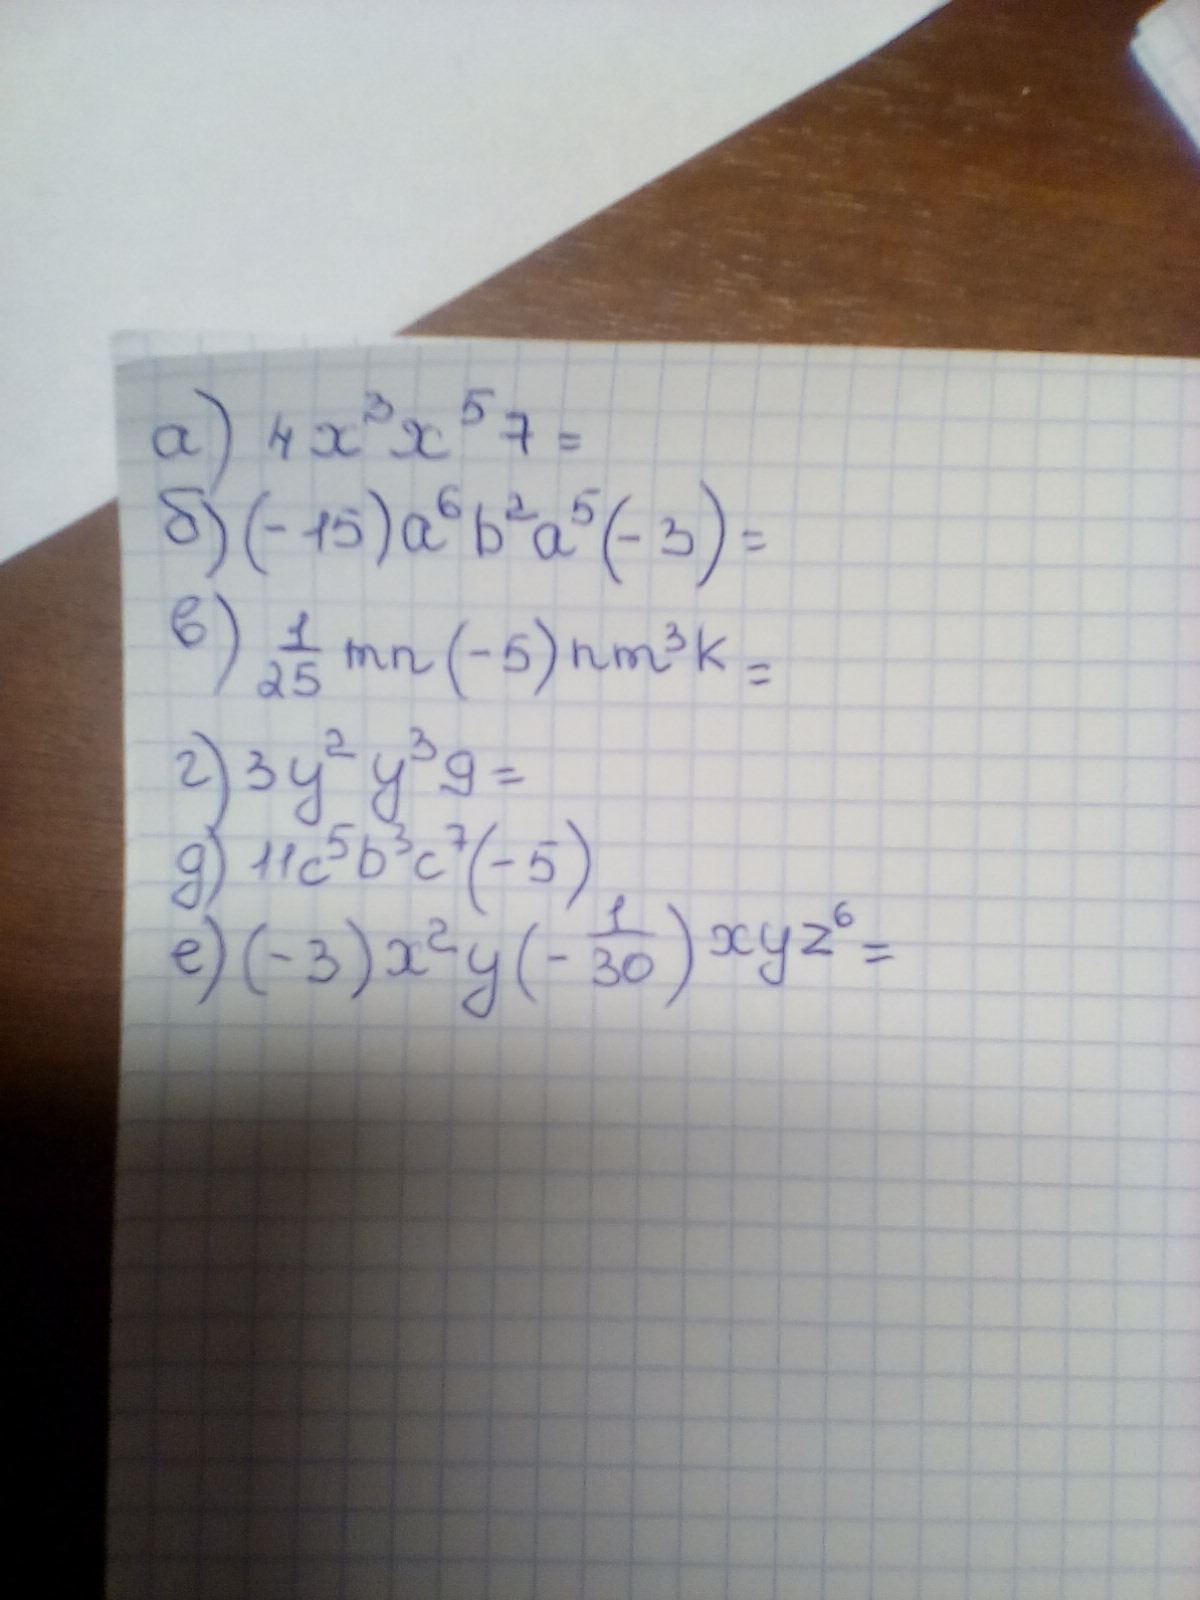 а) 4x³x⁵7=
б) (-15)a⁶b²a⁵(-3)=
в) 1/25 mn(-5)nm³k=
г) 3y²y³9=
д) 11c⁵b³c⁷(-5)
е) (-3)x²y(-1/30)xyz⁶=